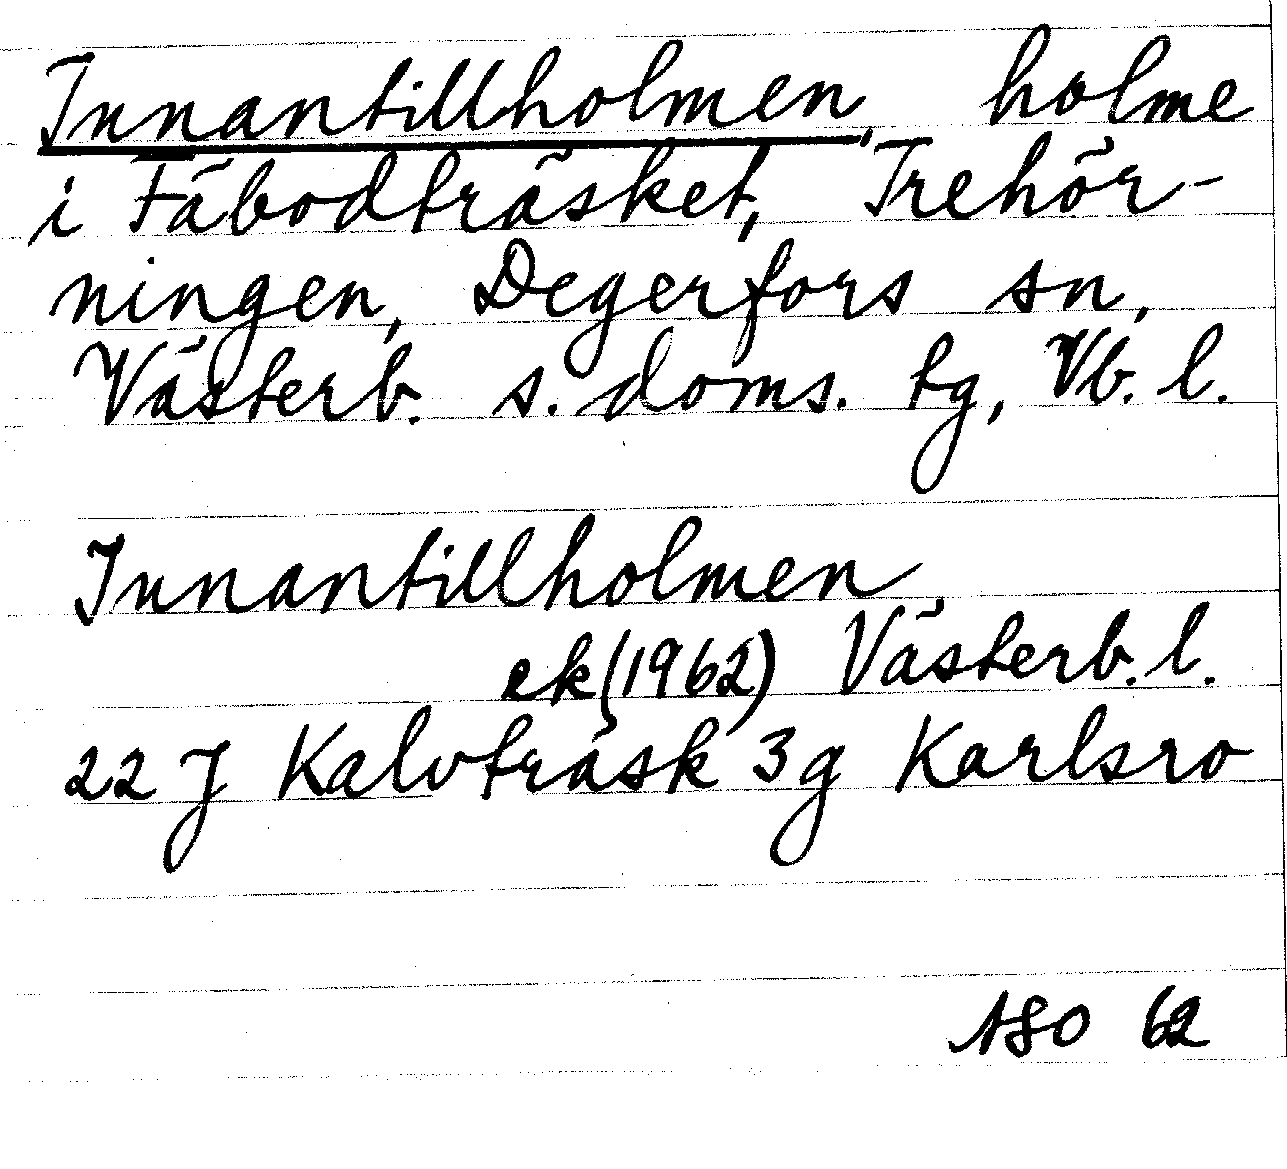 Innantillholmen, holme
i Fäbodträsket, Trehör-
ningen, Degerfors sn,
Västerb. s. doms. tg, Vb. l.
Innantillholmen,
ek (1962) Västerb. l.
22 J Kalvträsk 3g Karlsro
62